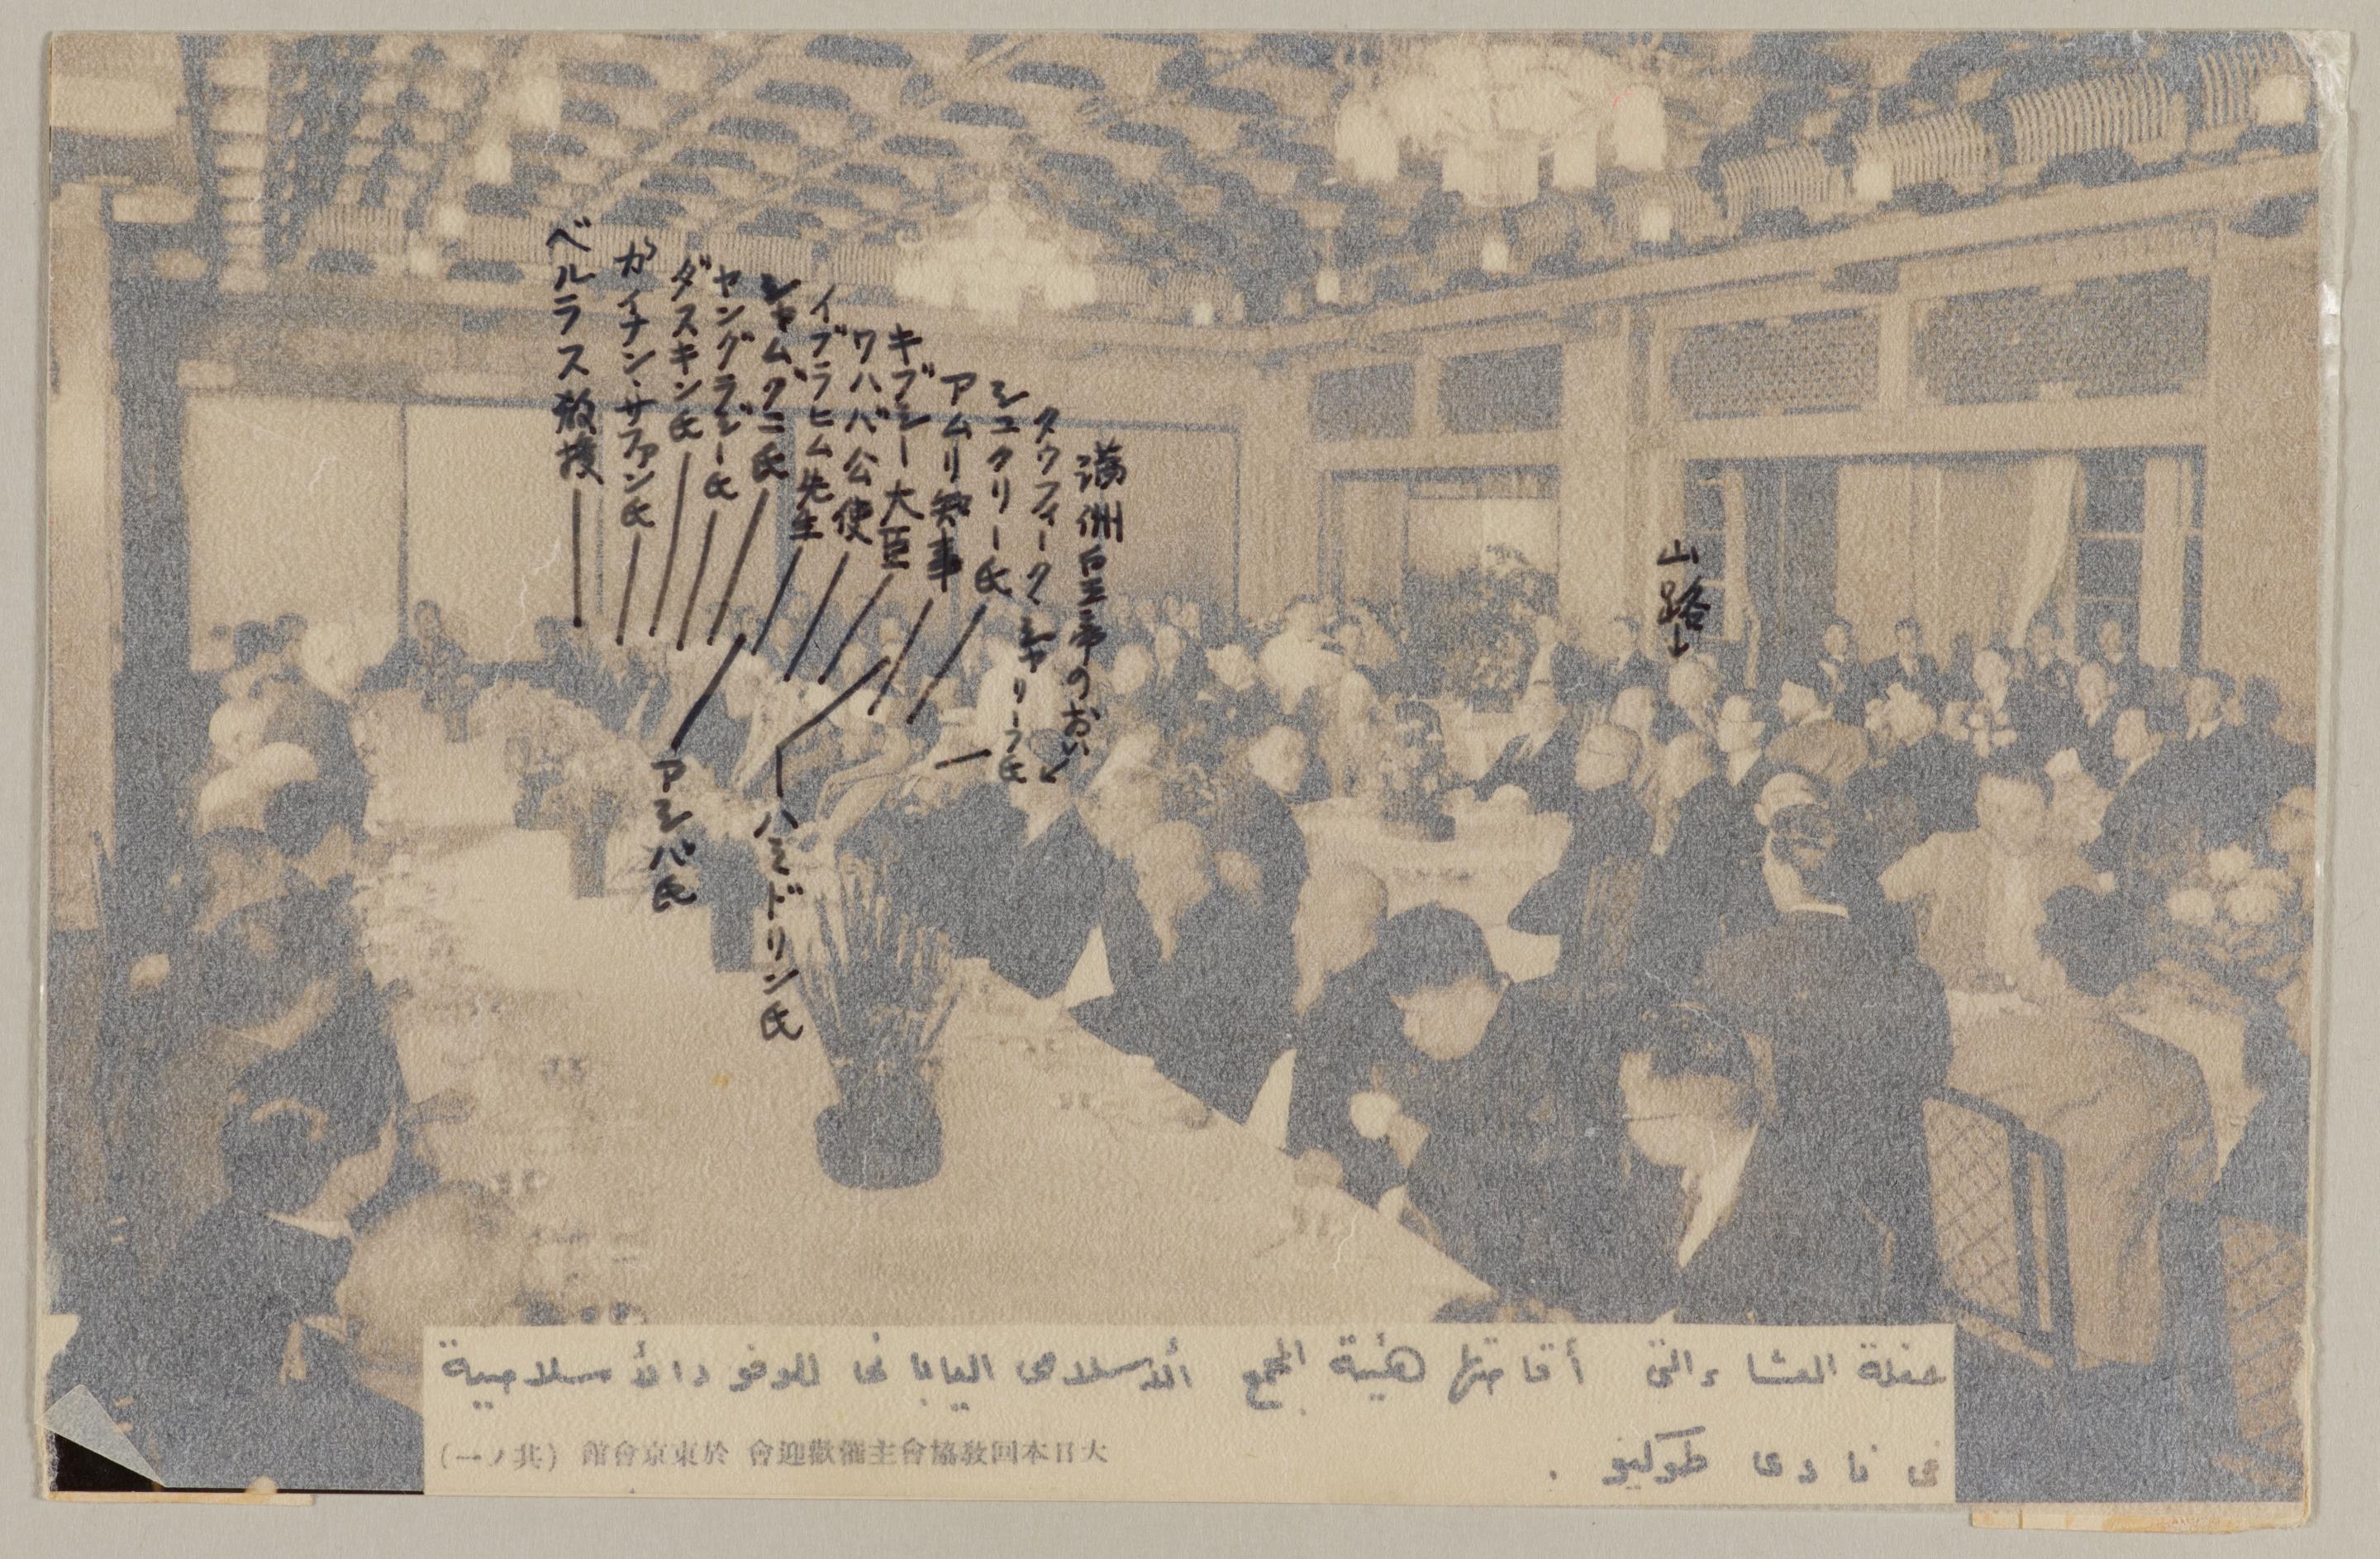 山路
満洲皇帝のおい
タウフィーク シャリーフ氏
シュクリー氏
アムリ知事
キブシー大臣
ワハバ公使
イブラヒム先生
シャムグニ氏
ヤングラジー氏
ダスキン氏
ガイナン・サファン氏
ベルラス教授
ハミドリン氏
アシバ氏
حفلة العشاء والتى أقامتها هيئة المجمع الأسلامى اليابانى للوفود الأسلامية
فى نادى طوكيو .
大日本回教協會主催歡迎會 於東京會館 (其ノ一)